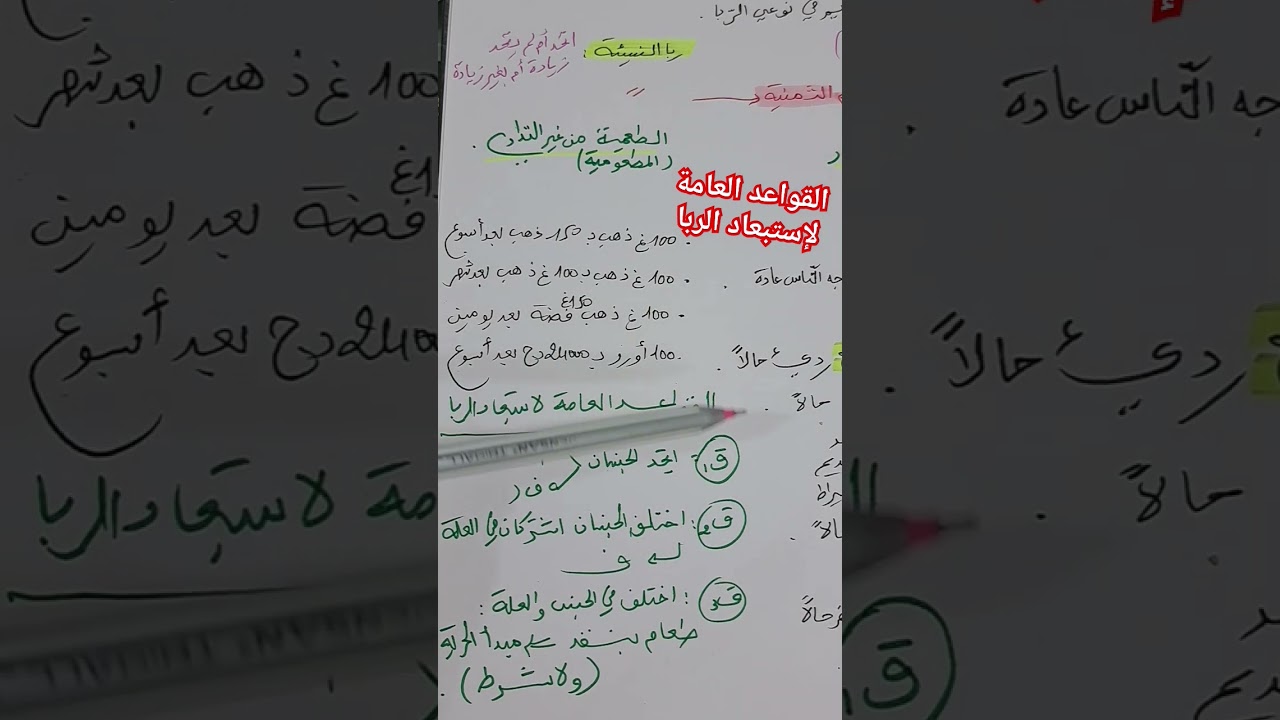 في نوعي الربا.
ربا النسيئة : اتحد أم لم يتحد
زيادة أم بغير زيادة
الثمنية
"
الطعمية من غير التداوي.
(المطعومية)
القواعد العامة
لإستبعاد الربا
. 100 غ ذهب بـ 150 ذهب بعد أسبوع
جه الناس عادة .
. 100 غ ذهب بـ 100 غ ذهب بعد شهر
. 100 غ ذهب 150غ فضة بعد يومين
رديء حالاً .
. 100 أورو بـ 24000 دج بعد أسبوع
حالاً .
العامة لاستبعاد الربا
ق1 : اتحد الجنسان
ق2 : اختلف الجنسان اشتركان في العلة
ق3 : اختلف في الجنس والعلة :
طعام بنقد مبدأ الحرية
(ولا شرط).